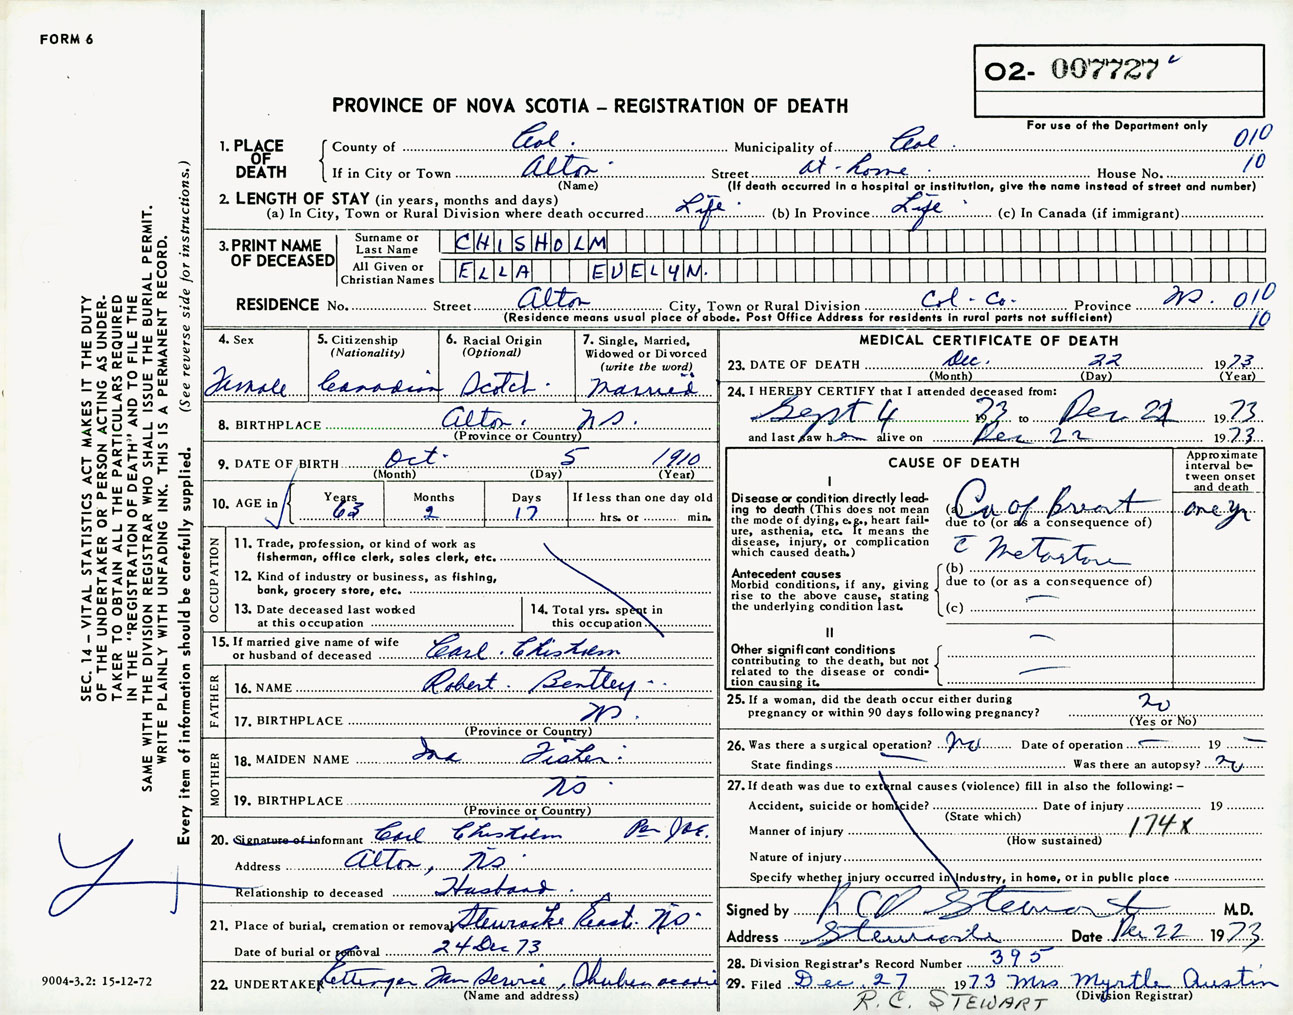 FORM 6
O2- 007727
For use of the Department only
PROVINCE OF NOVA SCOTIA – REGISTRATION OF DEATH
1. PLACE OF DEATH
County of Col. Municipality of Col. 010
If in City or Town Alton. Street at home House No. 10
(Name) (If death occurred in a hospital or institution, give the name instead of street and number)
2. LENGTH OF STAY (in years, months and days)
(a) In City, Town or Rural Division where death occurred Life. (b) In Province Life. (c) In Canada (if immigrant)
3. PRINT NAME OF DECEASED
Surname or Last Name CHISHOLM
All Given or Christian Names ELLA EVELYN.
RESIDENCE No. Street Alton City, Town or Rural Division Col. Co. Province NS. 010
(Residence means usual place of abode. Post Office Address for residents in rural parts not sufficient) 10
4. Sex Female
5. Citizenship (Nationality) Canadian
6. Racial Origin (Optional) Scotch.
7. Single, Married, Widowed or Divorced (write the word) Married
8. BIRTHPLACE Alton. NS.
(Province or Country)
9. DATE OF BIRTH Oct. 5 1910
(Month) (Day) (Year)
10. AGE in Years 63 Months 2 Days 17 If less than one day old hrs. or min.
OCCUPATION
11. Trade, profession, or kind of work as fisherman, office clerk, sales clerk, etc.
12. Kind of industry or business, as fishing, bank, grocery store, etc.
13. Date deceased last worked at this occupation
14. Total yrs. spent in this occupation
15. If married give name of wife or husband of deceased Carl. Chisholm
FATHER
16. NAME Robert. Bentley
17. BIRTHPLACE NS.
(Province or Country)
MOTHER
18. MAIDEN NAME Ina Fisher.
19. BIRTHPLACE NS
(Province or Country)
20. Signature of informant Carl Chisholm Per
Address Alton, NS.
Relationship to deceased Husband.
21. Place of burial, cremation or removal Stewiacke East. NS.
Date of burial or removal 24 Dec 73
22. UNDERTAKER Ettinger Fun Service, Shubenacadie
(Name and address)
MEDICAL CERTIFICATE OF DEATH
23. DATE OF DEATH Dec. 22 1973
(Month) (Day) (Year)
24. I HEREBY CERTIFY that I attended deceased from:
Sept 4 1973 to Dec 21 1973
and last saw her alive on Dec 22 1973
CAUSE OF DEATH
Approximate interval between onset and death
I
Disease or condition directly leading to death (This does not mean the mode of dying, e.g., heart failure, asthenia, etc. It means the disease, injury, or complication which caused death.)
(a) Ca of Breast one yr
due to (or as a consequence of)
Antecedent causes
Morbid conditions, if any, giving rise to the above cause, stating the underlying condition last.
c̄ Metastases
(b)
due to (or as a consequence of)
(c) —
II
Other significant conditions contributing to the death, but not related to the disease or condition causing it.
—
—
25. If a woman, did the death occur either during pregnancy or within 90 days following pregnancy? no
(Yes or No)
26. Was there a surgical operation? no Date of operation — 19 —
State findings — Was there an autopsy? no
27. If death was due to external causes (violence) fill in also the following: –
Accident, suicide or homicide? Date of injury 19
(State which)
Manner of injury 174X
(How sustained)
Nature of injury
Specify whether injury occurred in industry, in home, or in public place
Signed by R C D Stewart M.D.
Address Stewiacke Date Dec 22 1973
28. Division Registrar's Record Number 395
29. Filed Dec. 27 1973 Mrs. Myrtle Austin
(Division Registrar)
R. C. STEWART
SEC. 14 – VITAL STATISTICS ACT MAKES IT THE DUTY
OF THE UNDERTAKER OR PERSON ACTING AS UNDER-
TAKER TO OBTAIN ALL THE PARTICULARS REQUIRED
IN THE "REGISTRATION OF DEATH" AND TO FILE THE
SAME WITH THE DIVISION REGISTRAR WHO SHALL ISSUE THE BURIAL PERMIT.
WRITE PLAINLY WITH UNFADING INK. THIS IS A PERMANENT RECORD.
Every item of information should be carefully supplied. (See reverse side for instructions.)
9004-3.2: 15-12-72